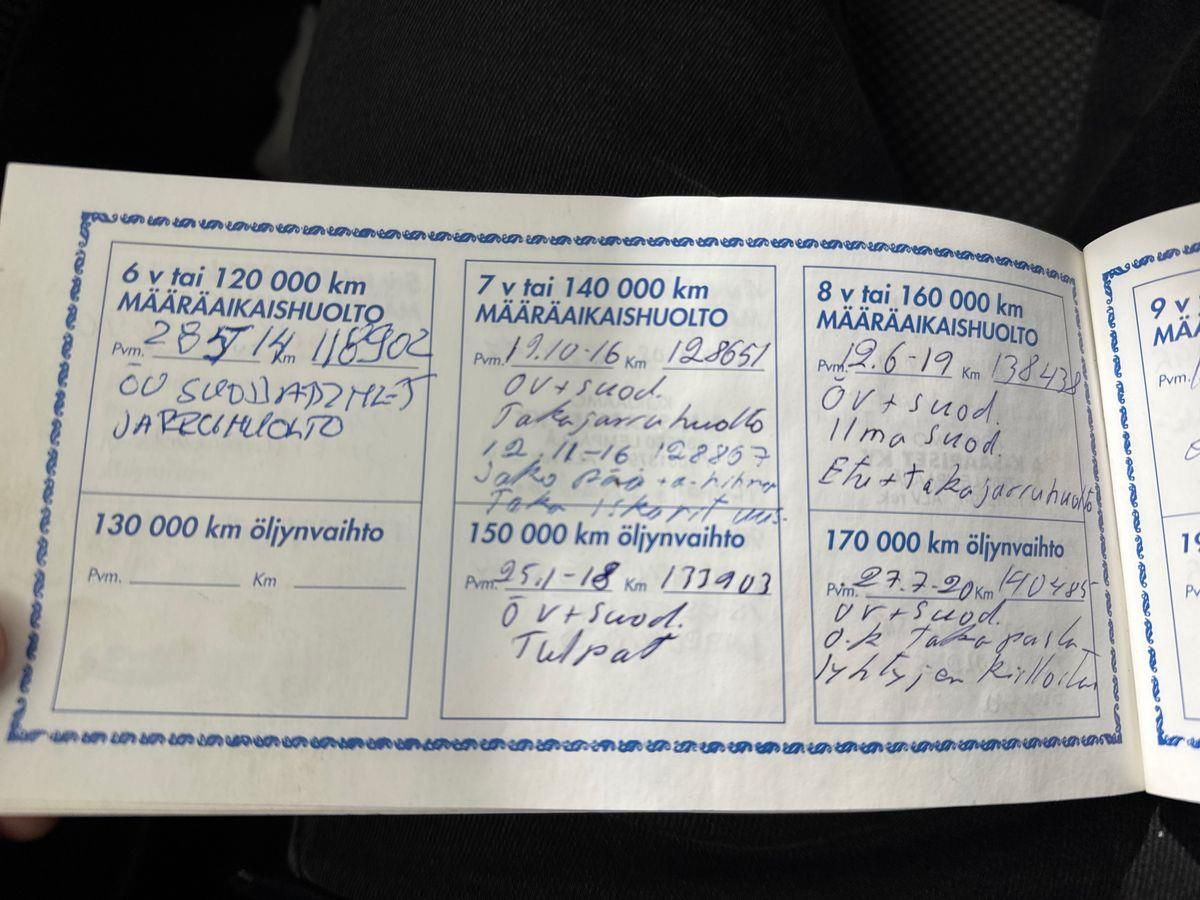 6 v tai 120 000 km
MÄÄRÄAIKAISHUOLTO
Pvm. 28 5 14 Km 118902
ÖV
JARRUHUOLTO
130 000 km öljynvaihto
Pvm. Km
7 v tai 140 000 km
MÄÄRÄAIKAISHUOLTO
Pvm. 19.10-16 Km 128651
ÖV+suod.
Takajarruhuolto
12.11-16 128867
Jako pää +a-hihna
Taka iskarit uus.
150 000 km öljynvaihto
Pvm. 25.1-18 Km 133903
ÖV+suod.
Tulpat
8 v tai 160 000 km
MÄÄRÄAIKAISHUOLTO
Pvm. 12.6-19 Km 138438
ÖV+suod.
Ilmasuod.
Etu+takajarruhuolto
170 000 km öljynvaihto
Pvm. 27.7-20 Km 140485
ÖV+suod.
o.k taka
lyhtyjen
9 v
Pvm.